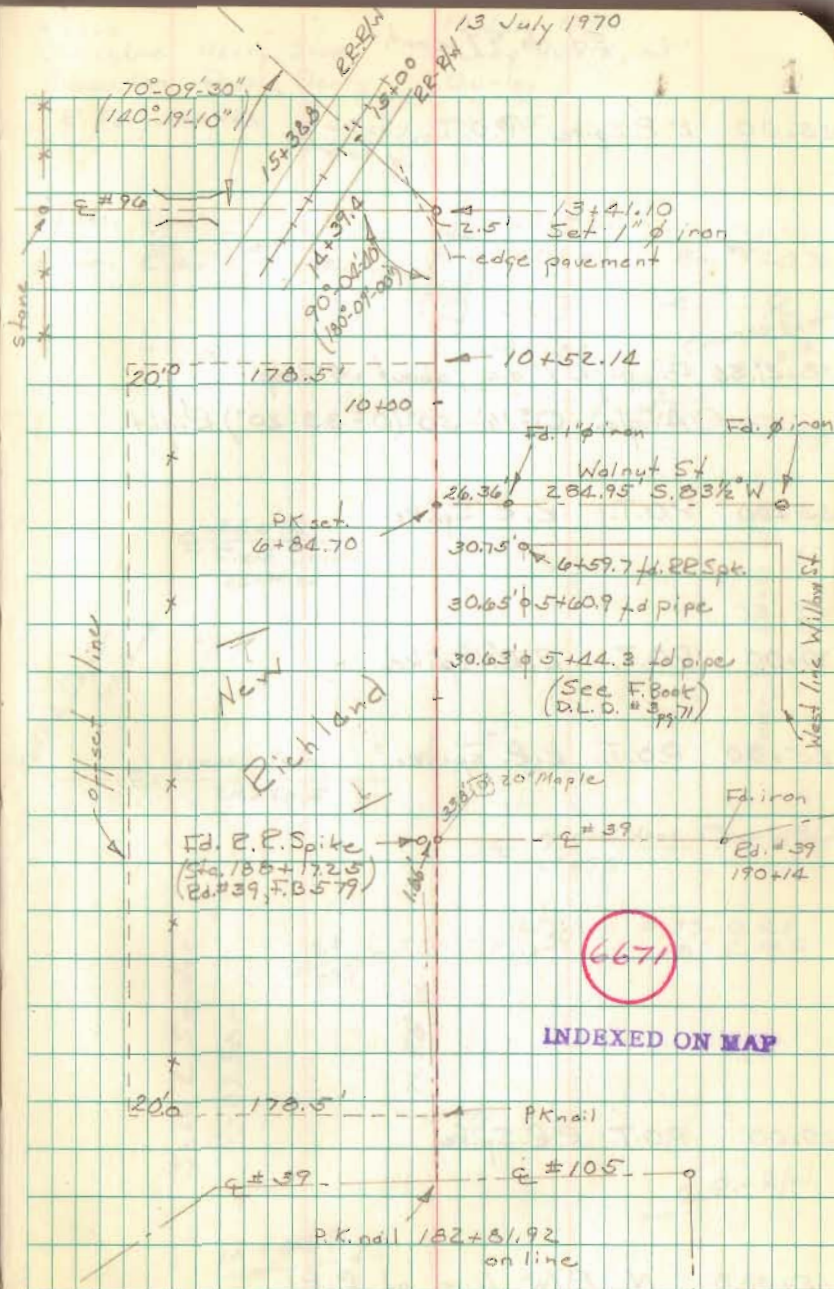 13 July 1970
1
70°-09'-30"
(140°-19'-10")
RR-R/W
RR-R/W
15+38.8
15+00
14+39.4
90°-04'-40"
(180°-09'-00")
℄ #96
stone
13+41.10
2.5'
Set 1" ϕ iron
edge pavement
10+52.14
20'
178.5'
10+00
Fd. 1" ϕ iron
Fd. ϕ iron
Walnut St
26.36'
284.95' S. 83½° W
PK set.
6+84.70
30.75'
6+59.7 fd. RR Spk.
30.65' 5+60.9 fd pipe
30.63' 5+44.3 fd pipe
(See F. Book
D.L.D. #3 pg. 71)
West line Willow St
offset line
New
Richland
20" Maple
Fd. iron
Fd. R.R. Spike
(Sta. 188+17.25
Rd. #39, F.B 579)
℄ #39
Rd. #39
190+14
6671
INDEXED ON MAP
20'
178.5'
PK nail
℄ #39
℄ #105
P.K. nail 182+81.92
on line